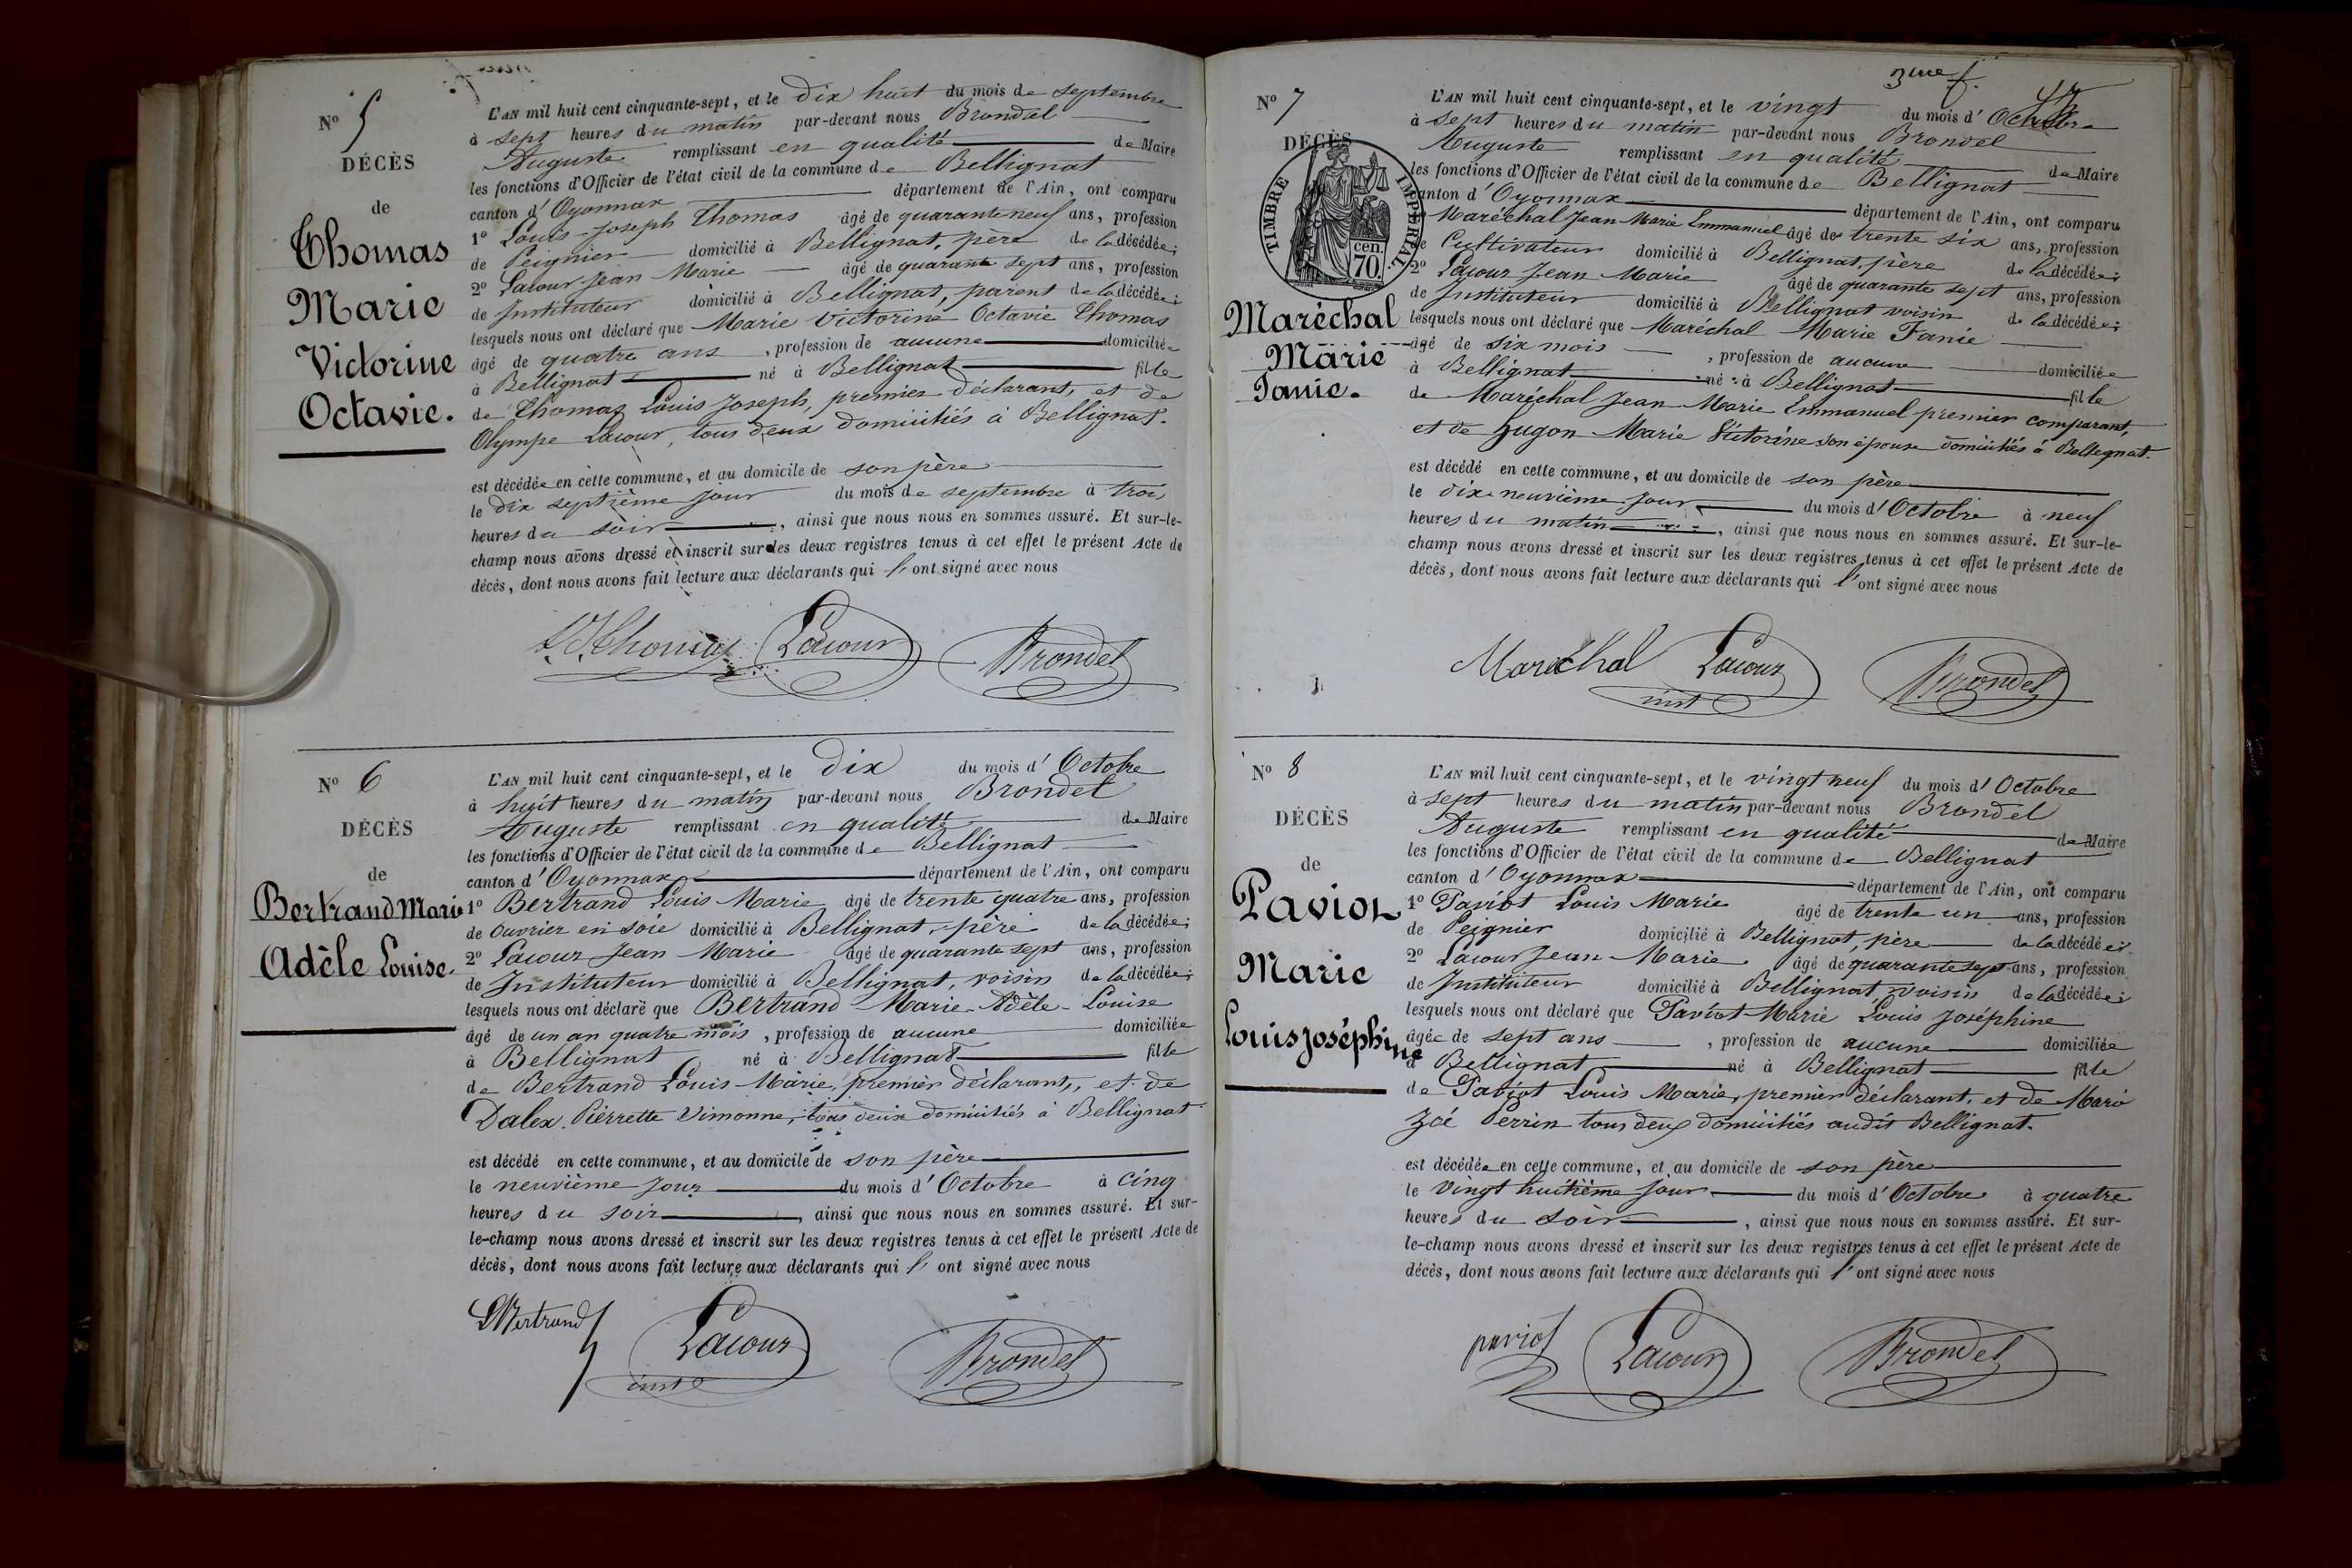 Nº 5
DÉCÈS
de
Thomas
Marie
Victorine
Octavie.
L'AN mil huit cent cinquante-sept, et le dix huit du mois de septembre
à sept heures du matin par-devant nous Brondel
Auguste remplissant en qualité de Maire
les fonctions d'Officier de l'état civil de la commune de Bellignat
canton d'Oyonnax département de l'Ain, ont comparu
1º Louis-Joseph Thomas âgé de quarante neuf ans, profession
de Peignier domicilié à Bellignat, père de la décédée;
2º Lacour Jean Marie âgé de quarante sept ans, profession
de Instituteur domicilié à Bellignat, parent de la décédée;
lesquels nous ont déclaré que Marie Victorine Octavie Thomas
âgé de quatre ans, profession de aucune domiciliée
à Bellignat né à Bellignat fille
de Thomas Louis Joseph, premier déclarant, et de
Olympe Lacour, tous deux domiciliés à Bellignat.
est décédée en cette commune, et au domicile de son père
le dix septième jour du mois de septembre à trois
heures du soir, ainsi que nous nous en sommes assuré. Et sur-le-
champ nous avons dressé et inscrit sur les deux registres tenus à cet effet le présent Acte de
décès, dont nous avons fait lecture aux déclarants qui l'ont signé avec nous
L. J. Thomas Lacour Brondel
Nº 6
DÉCÈS
de
Bertrand Marie
Adèle Louise.
L'AN mil huit cent cinquante-sept, et le dix du mois d'Octobre
à huit heures du matin par-devant nous Brondel
Auguste remplissant en qualité de Maire
les fonctions d'Officier de l'état civil de la commune de Bellignat
canton d'Oyonnax département de l'Ain, ont comparu
1º Bertrand Louis Marie âgé de trente quatre ans, profession
de ouvrier en soie domicilié à Bellignat, père de la décédée;
2º Lacour Jean Marie âgé de quarante sept ans, profession
de Instituteur domicilié à Bellignat, voisin de la décédée;
lesquels nous ont déclaré que Bertrand Marie-Adèle-Louise
âgé de un an quatre mois, profession de aucune domiciliée
à Bellignat né à Bellignat fille
de Bertrand Louis Marie, premier déclarant, et de
Dalex Pierrette Simonne, tous deux domiciliés à Bellignat
est décédé en cette commune, et au domicile de son père
le neuvième jour du mois d'Octobre à cinq
heures du soir, ainsi que nous nous en sommes assuré. Et sur-
le-champ nous avons dressé et inscrit sur les deux registres tenus à cet effet le présent Acte de
décès, dont nous avons fait lecture aux déclarants qui l'ont signé avec nous
LMBertrand Lacour inst Brondel
3me f.
Nº 7
DÉCÈS
TIMBRE IMPÉRIAL
70 cen.
Maréchal
Marie
Fanie.
L'AN mil huit cent cinquante-sept, et le vingt du mois d'Octobre
à sept heures du matin par-devant nous Brondel
Auguste remplissant en qualité de Maire
les fonctions d'Officier de l'état civil de la commune de Bellignat
canton d'Oyonnax département de l'Ain, ont comparu
Maréchal Jean Marie Emmanuel âgé de trente six ans, profession
de Cultivateur domicilié à Bellignat, père de la décédée;
2º Lacour Jean Marie âgé de quarante sept ans, profession
de Instituteur domicilié à Bellignat voisin de la décédée;
lesquels nous ont déclaré que Maréchal Marie Fanie
âgé de six mois, profession de aucune domiciliée
à Bellignat né à Bellignat fille
de Maréchal Jean Marie Emmanuel premier comparant,
et de Hugon Marie Victorine son épouse domiciliés à Bellignat.
est décédé en cette commune, et au domicile de son père
le dix-neuvième jour du mois d'Octobre à neuf
heures du matin, ainsi que nous nous en sommes assuré. Et sur-le-
champ nous avons dressé et inscrit sur les deux registres tenus à cet effet le présent Acte de
décès, dont nous avons fait lecture aux déclarants qui l'ont signé avec nous
Maréchal Lacour inst Brondel
Nº 8
DÉCÈS
de
Paviot
Marie
Louis Joséphine
L'AN mil huit cent cinquante-sept, et le vingt neuf du mois d'Octobre
à sept heures du matin par-devant nous Brondel
Auguste remplissant en qualité de Maire
les fonctions d'Officier de l'état civil de la commune de Bellignat
canton d'Oyonnax département de l'Ain, ont comparu
1º Paviot Louis Marie âgé de trente un ans, profession
de Peignier domicilié à Bellignat, père de la décédée;
2º Lacour Jean-Marie âgé de quarante sept ans, profession
de Instituteur domicilié à Bellignat, voisin de la décédée;
lesquels nous ont déclaré que Paviot Marie Louis Joséphine
âgée de sept ans, profession de aucune domiciliée
à Bellignat né à Bellignat fille
de Paviot Louis Marie, premier déclarant, et de Marie
Zoé Perrin tous deux domiciliés audit Bellignat.
est décédée en cette commune, et au domicile de son père
le vingt huitième jour du mois d'Octobre à quatre
heures du soir, ainsi que nous nous en sommes assuré. Et sur-
le-champ nous avons dressé et inscrit sur les deux registres tenus à cet effet le présent Acte de
décès, dont nous avons fait lecture aux déclarants qui l'ont signé avec nous
paviot Lacour Brondel